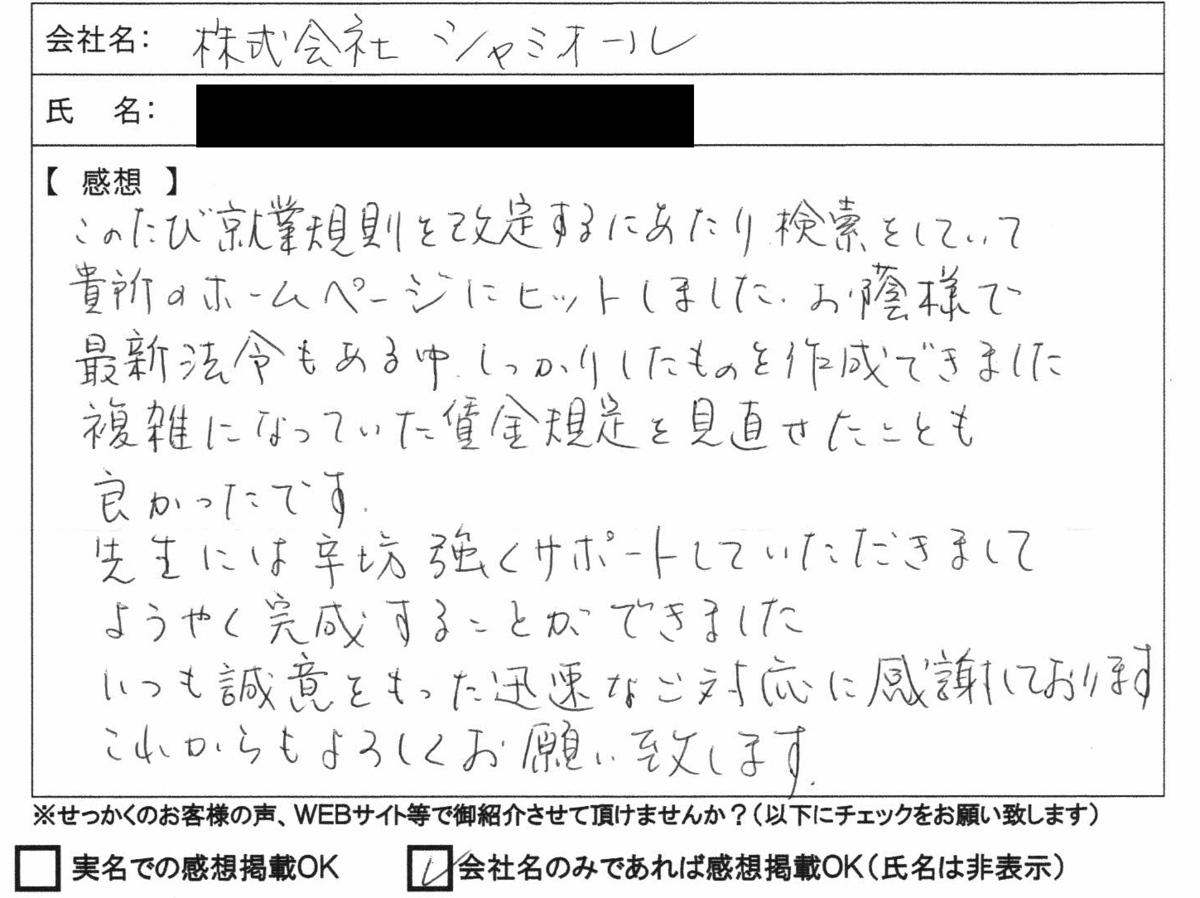 会社名： 株式会社 シャミオール
氏　名：
【 感想 】
このたび就業規則を改定するにあたり検索をしていて
貴所のホームページにヒットしました。お蔭様で
最新法令もある中、しっかりしたものを作成できました
複雑になっていた賃金規定を見直せたことも
良かったです。
先生には辛坊強くサポートしていただきまして
ようやく完成することができました
いつも誠意をもった迅速なご対応に感謝しております
これからもよろしくお願い致します。
※せっかくのお客様の声、WEBサイト等で御紹介させて頂けませんか？（以下にチェックをお願い致します）
実名での感想掲載OK　会社名のみであれば感想掲載OK（氏名は非表示）